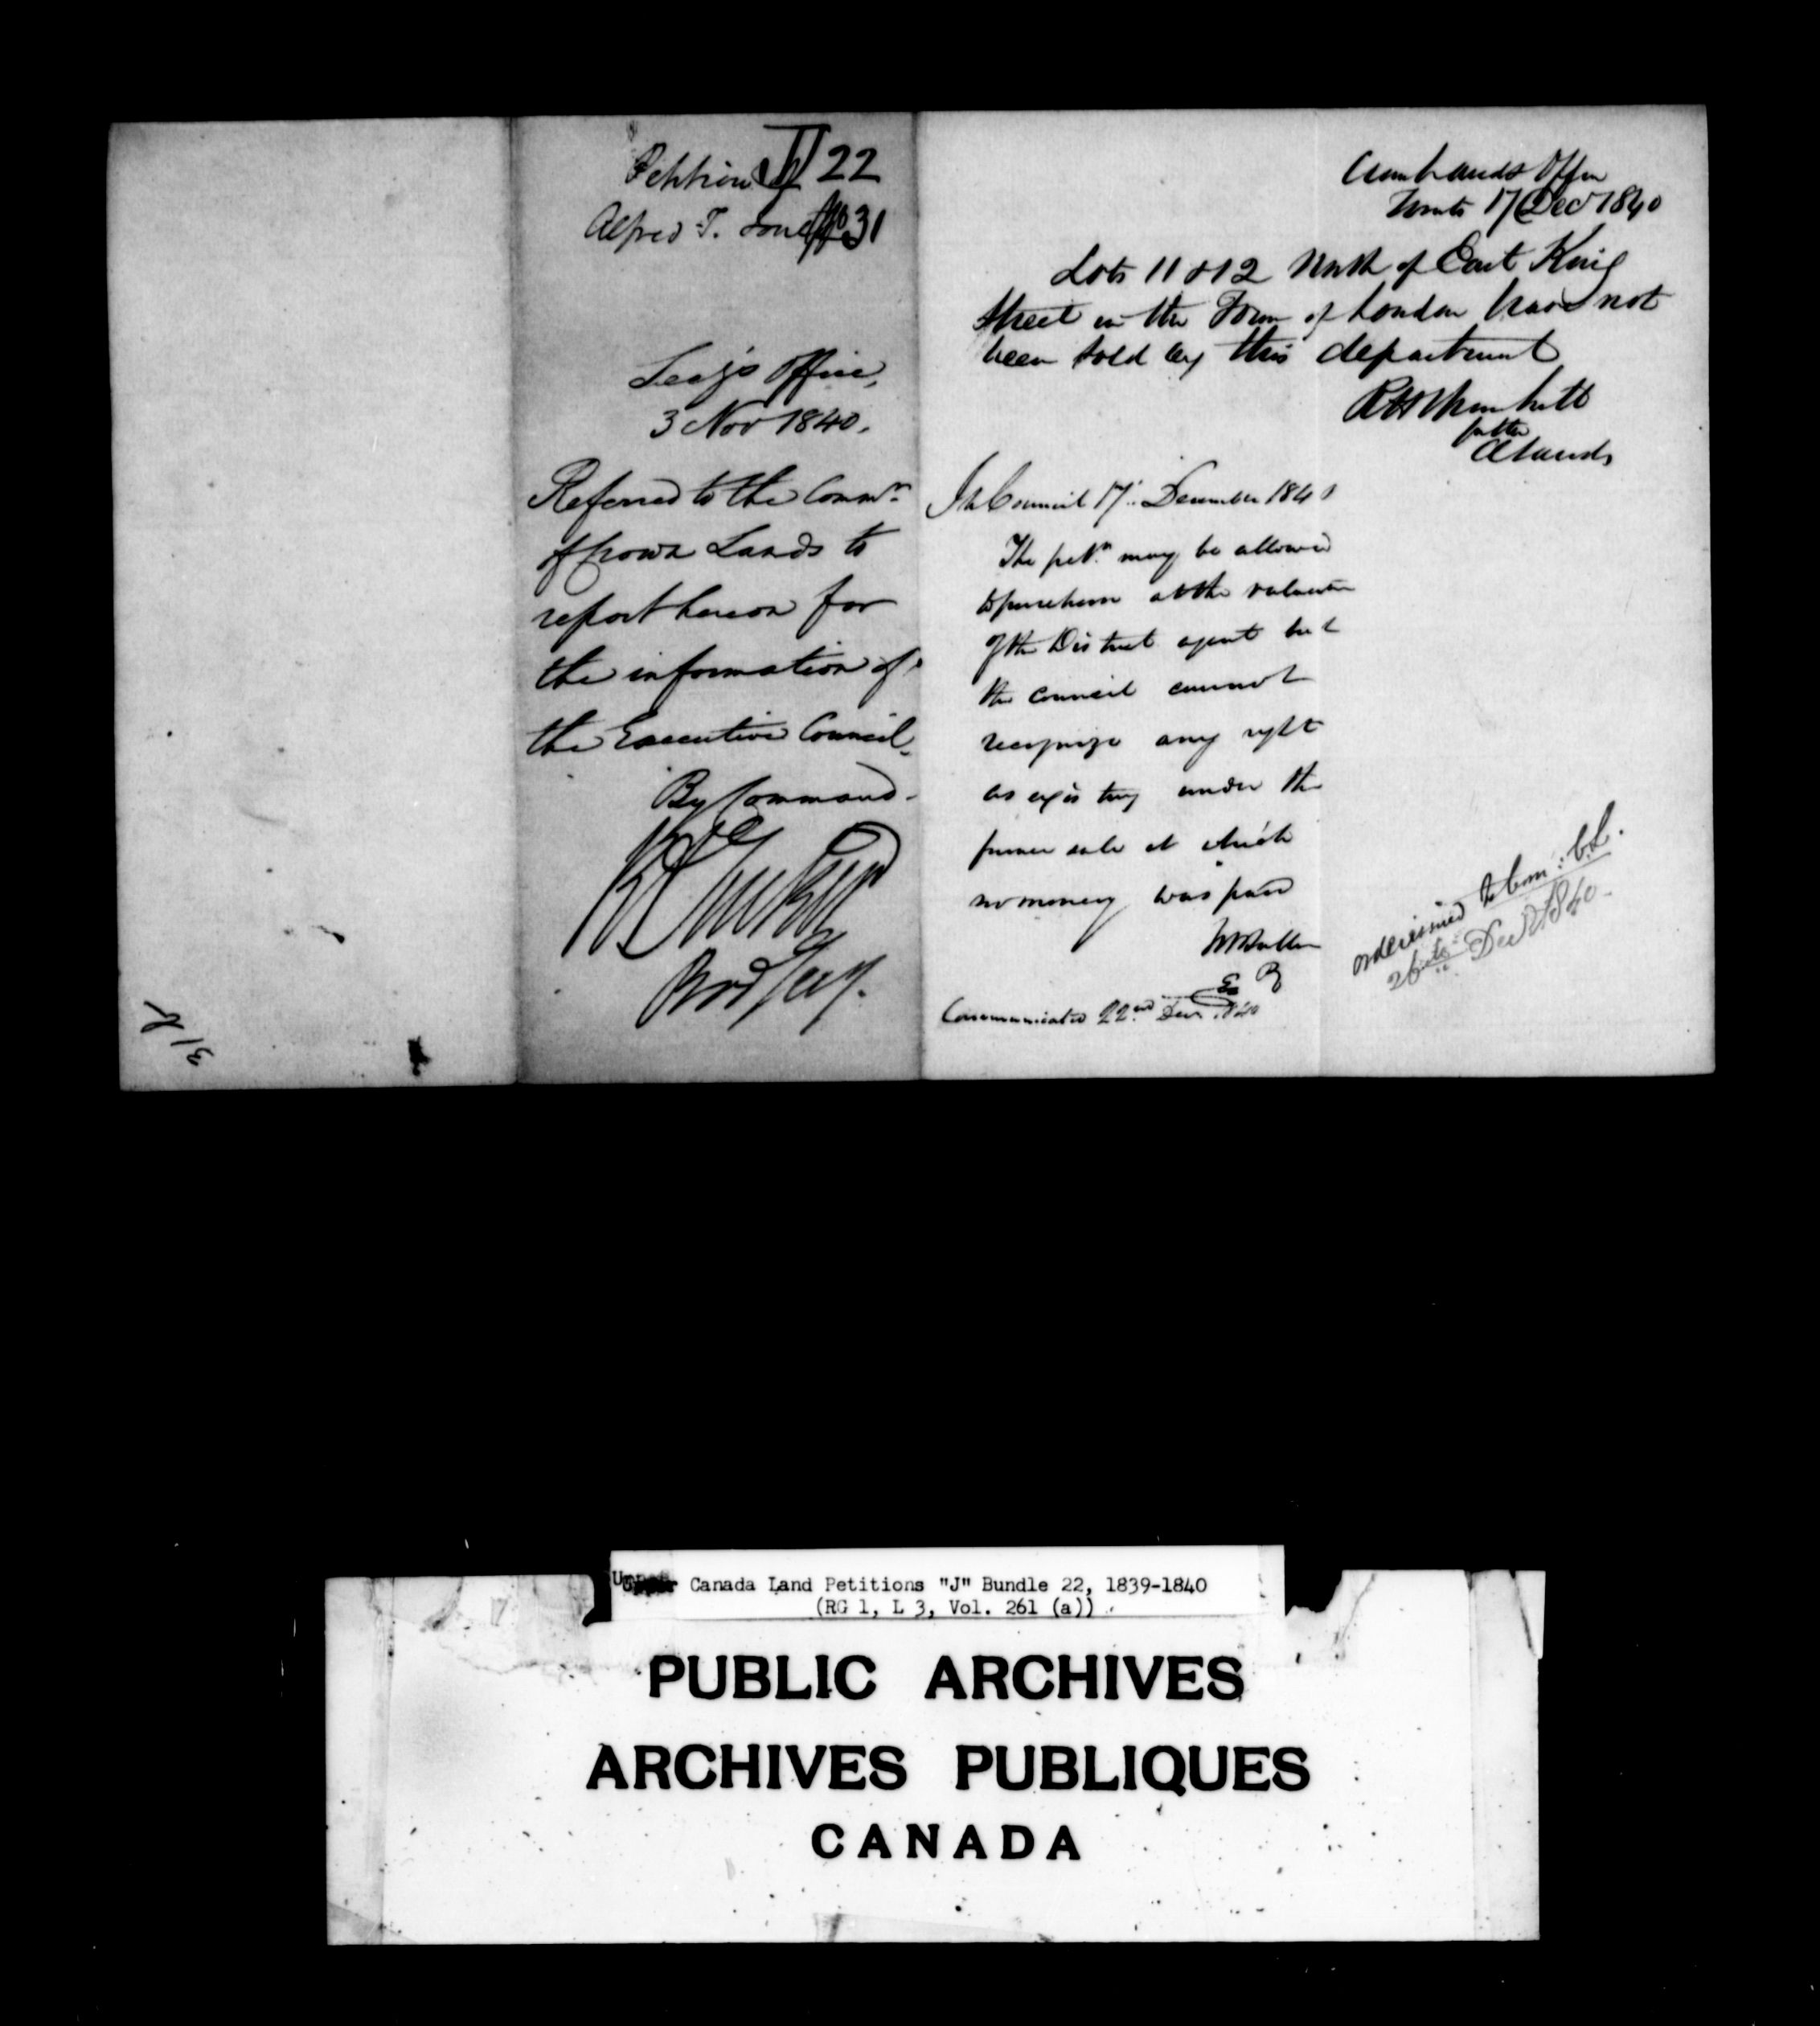 Petition of J 22
Alfred T. Jones No 31
Secy's Office,
3 Nov 1840.
Referred to the Commr.
of Crown Lands to
report hereon for
the information of
the Executive Council,
By Command.
Secy.
31 R
Lands Office
17 Dec 1840
Lots 11 & 12 North of East King
Street in the Town of London have not
been sold by this department
R H Thornhill
for the
In Council 17th December 1840
The petr. may be allowed
to purchase at the valuation
of the District agent but
the council cannot
recognize any right
as existing under the
former sale at which
no money was paid
Communicated 22nd Decr. 1840
order issued to Com: C.L.
26th Decr 1840.
Upper Canada Land Petitions "J" Bundle 22, 1839-1840
(RG 1, L 3, Vol. 261 (a))
PUBLIC ARCHIVES
ARCHIVES PUBLIQUES
CANADA